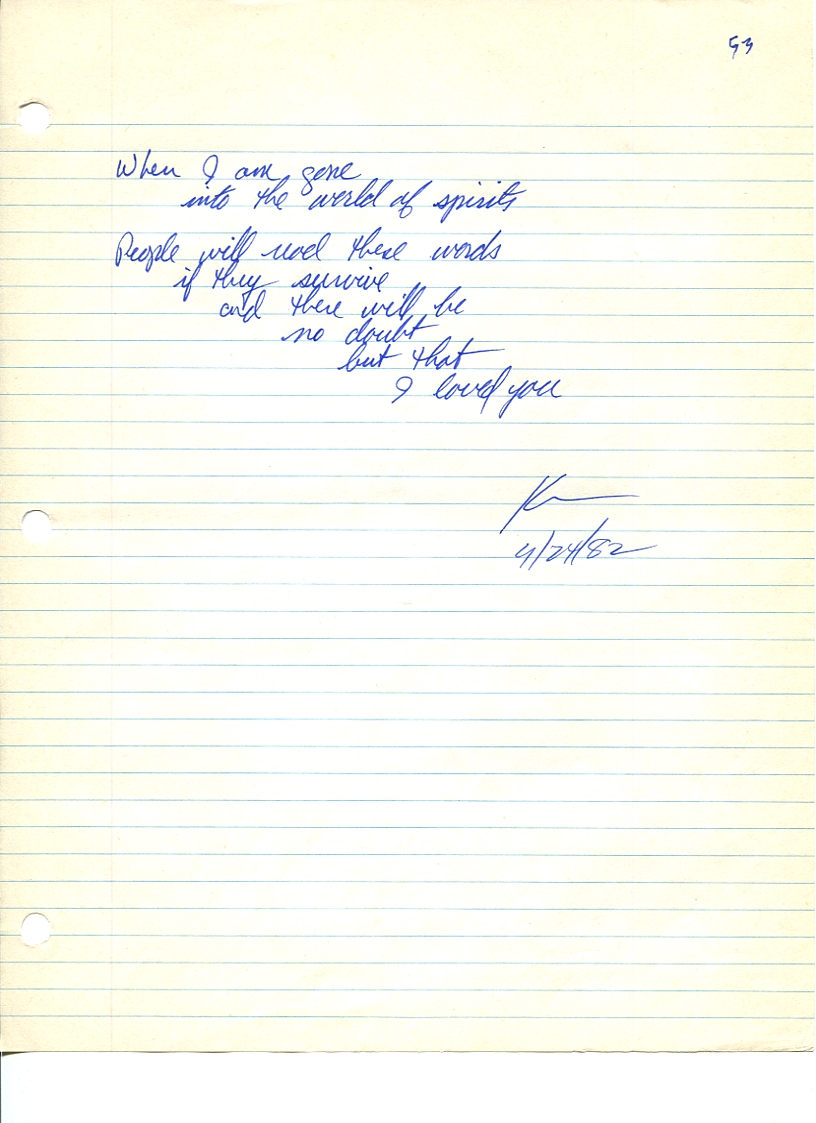 53
When I am gone
into the world of spirits
People will read these words
if they survive
and there will be
no doubt
but that
I loved you
4/24/82